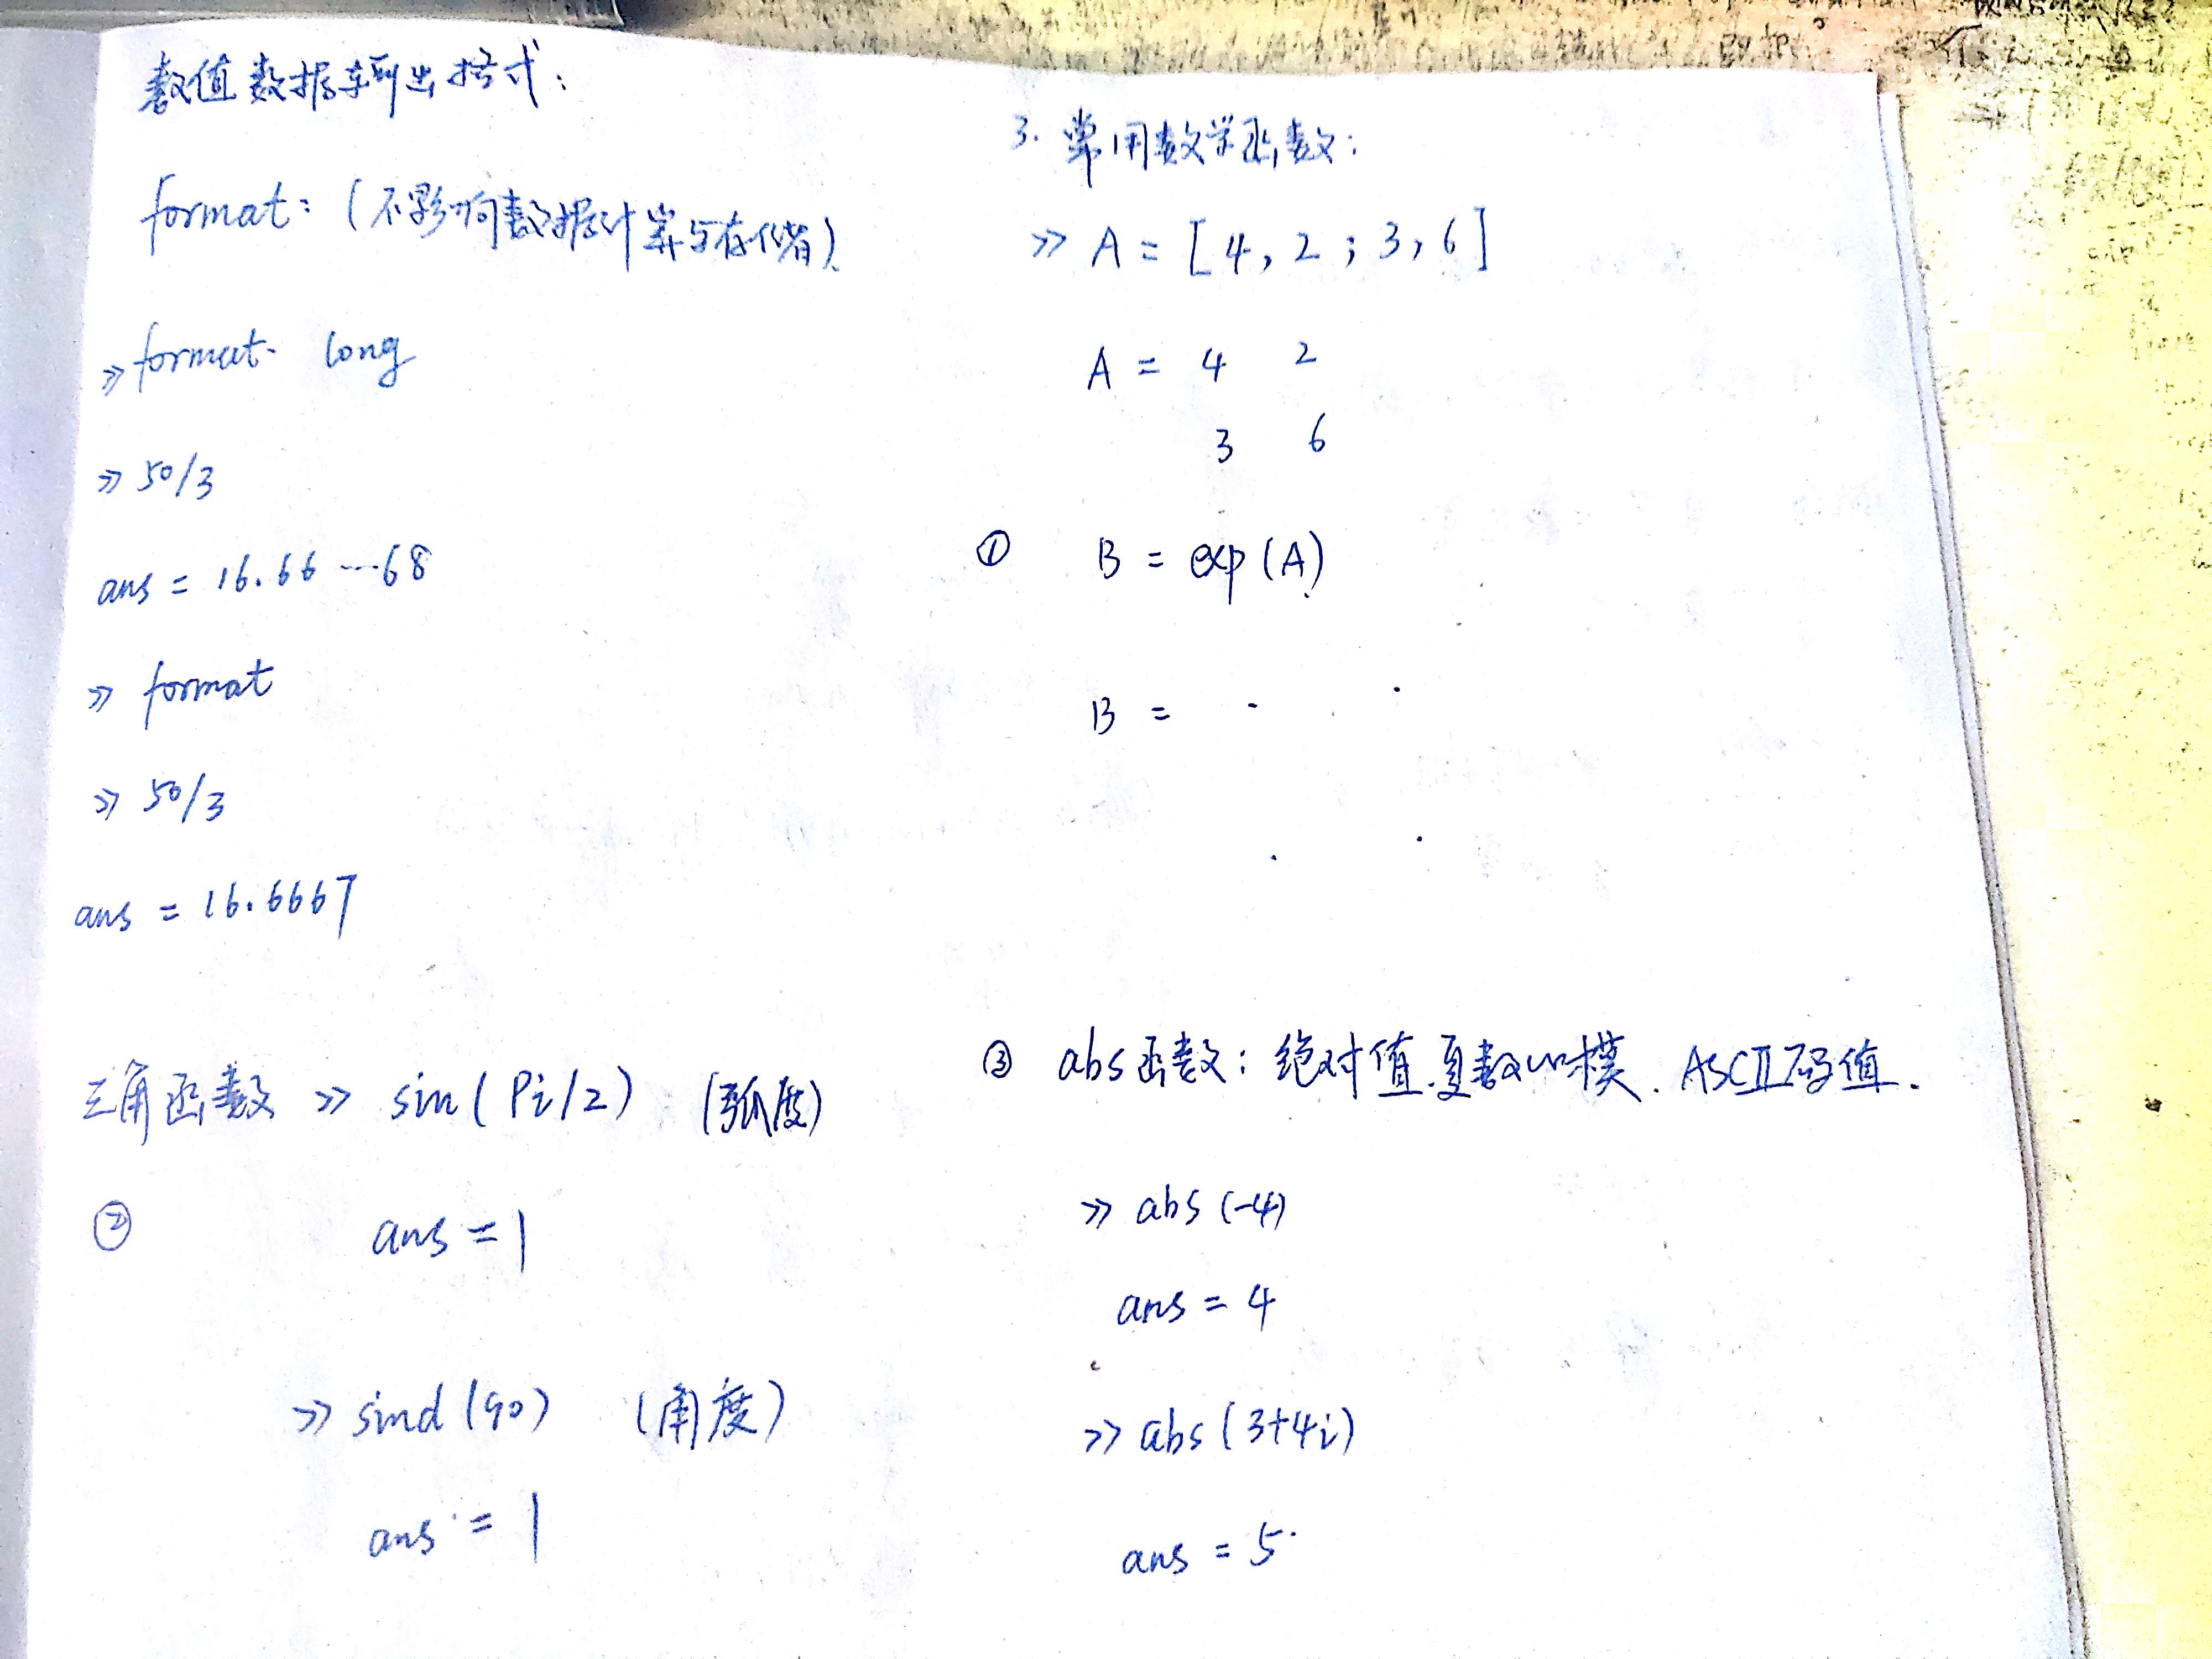 数值数据输出格式：
format：(不影响数据计算与存储).
>> format long
>> 50/3
ans = 16.66 ---68
>> format
>> 50/3
ans = 16.6667
三角函数 >> sin(Pi/2) (弧度)
② ans = 1
>> sind(90) (角度)
ans = 1
3. 常用数学函数：
>> A = [4, 2 ; 3, 6]
A = 4 2
3 6
① B = exp(A)
B = . .
. .
③ abs函数：绝对值.复数的模. ASCII码值.
>> abs(-4)
ans = 4
>> abs(3+4i)
ans = 5.